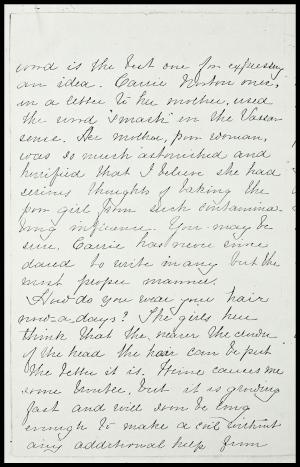 word is the best one for expressing
an idea. Carrie Norton once,
in a letter to her mother, used
the word "smash" in the Vassar
sense. Her mother, poor woman,
was so much astonished and
horrified that I believe she had
serious thoughts of taking the
poor girl from such contamina-
ting influence. You may be
sure, Carrie has never since
dared to write in any but the
most proper manner.
How do you wear your hair
now-a-days? The girls here
think that the nearer the centre
of the head the hair can be put
the better it is. Mine causes me
some trouble, but it is growing
fast and will soon be long
enough to make a coil without
any additional help from